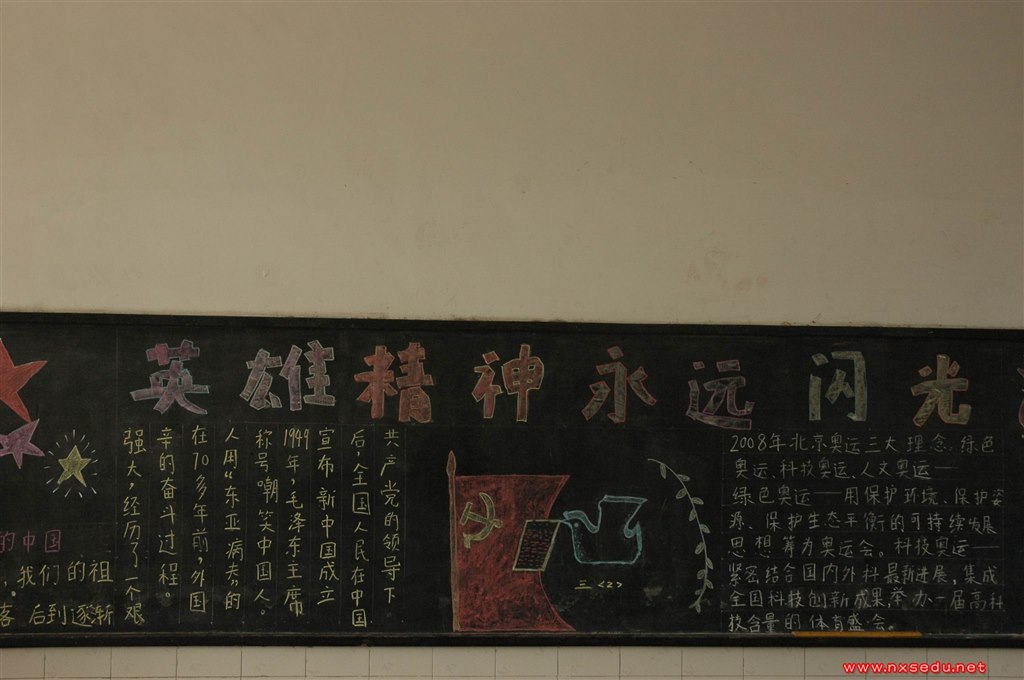 英雄精神永远闪光
的中国
，我们的祖
落后到逐渐
强大，经历了一个艰
亲的奋斗过程。
在70多年前，外国
人用“东亚病夫”的
称号嘲笑中国人。
1949年，毛泽东主席
宣布新中国成立
后，全国人民在中国
共产党的领导下
三<2>
2008年北京奥运三大理念：绿色
奥运、科技奥运、人文奥运——
绿色奥运——用保护环境、保护资
源、保护生态平衡的可持续发展
思想筹为奥运会。科技奥运——
紧密结合国内外科最新进展，集成
全国科技创新成果，举办一届高科
技含量的体育盛会。
www.nxsedu.net